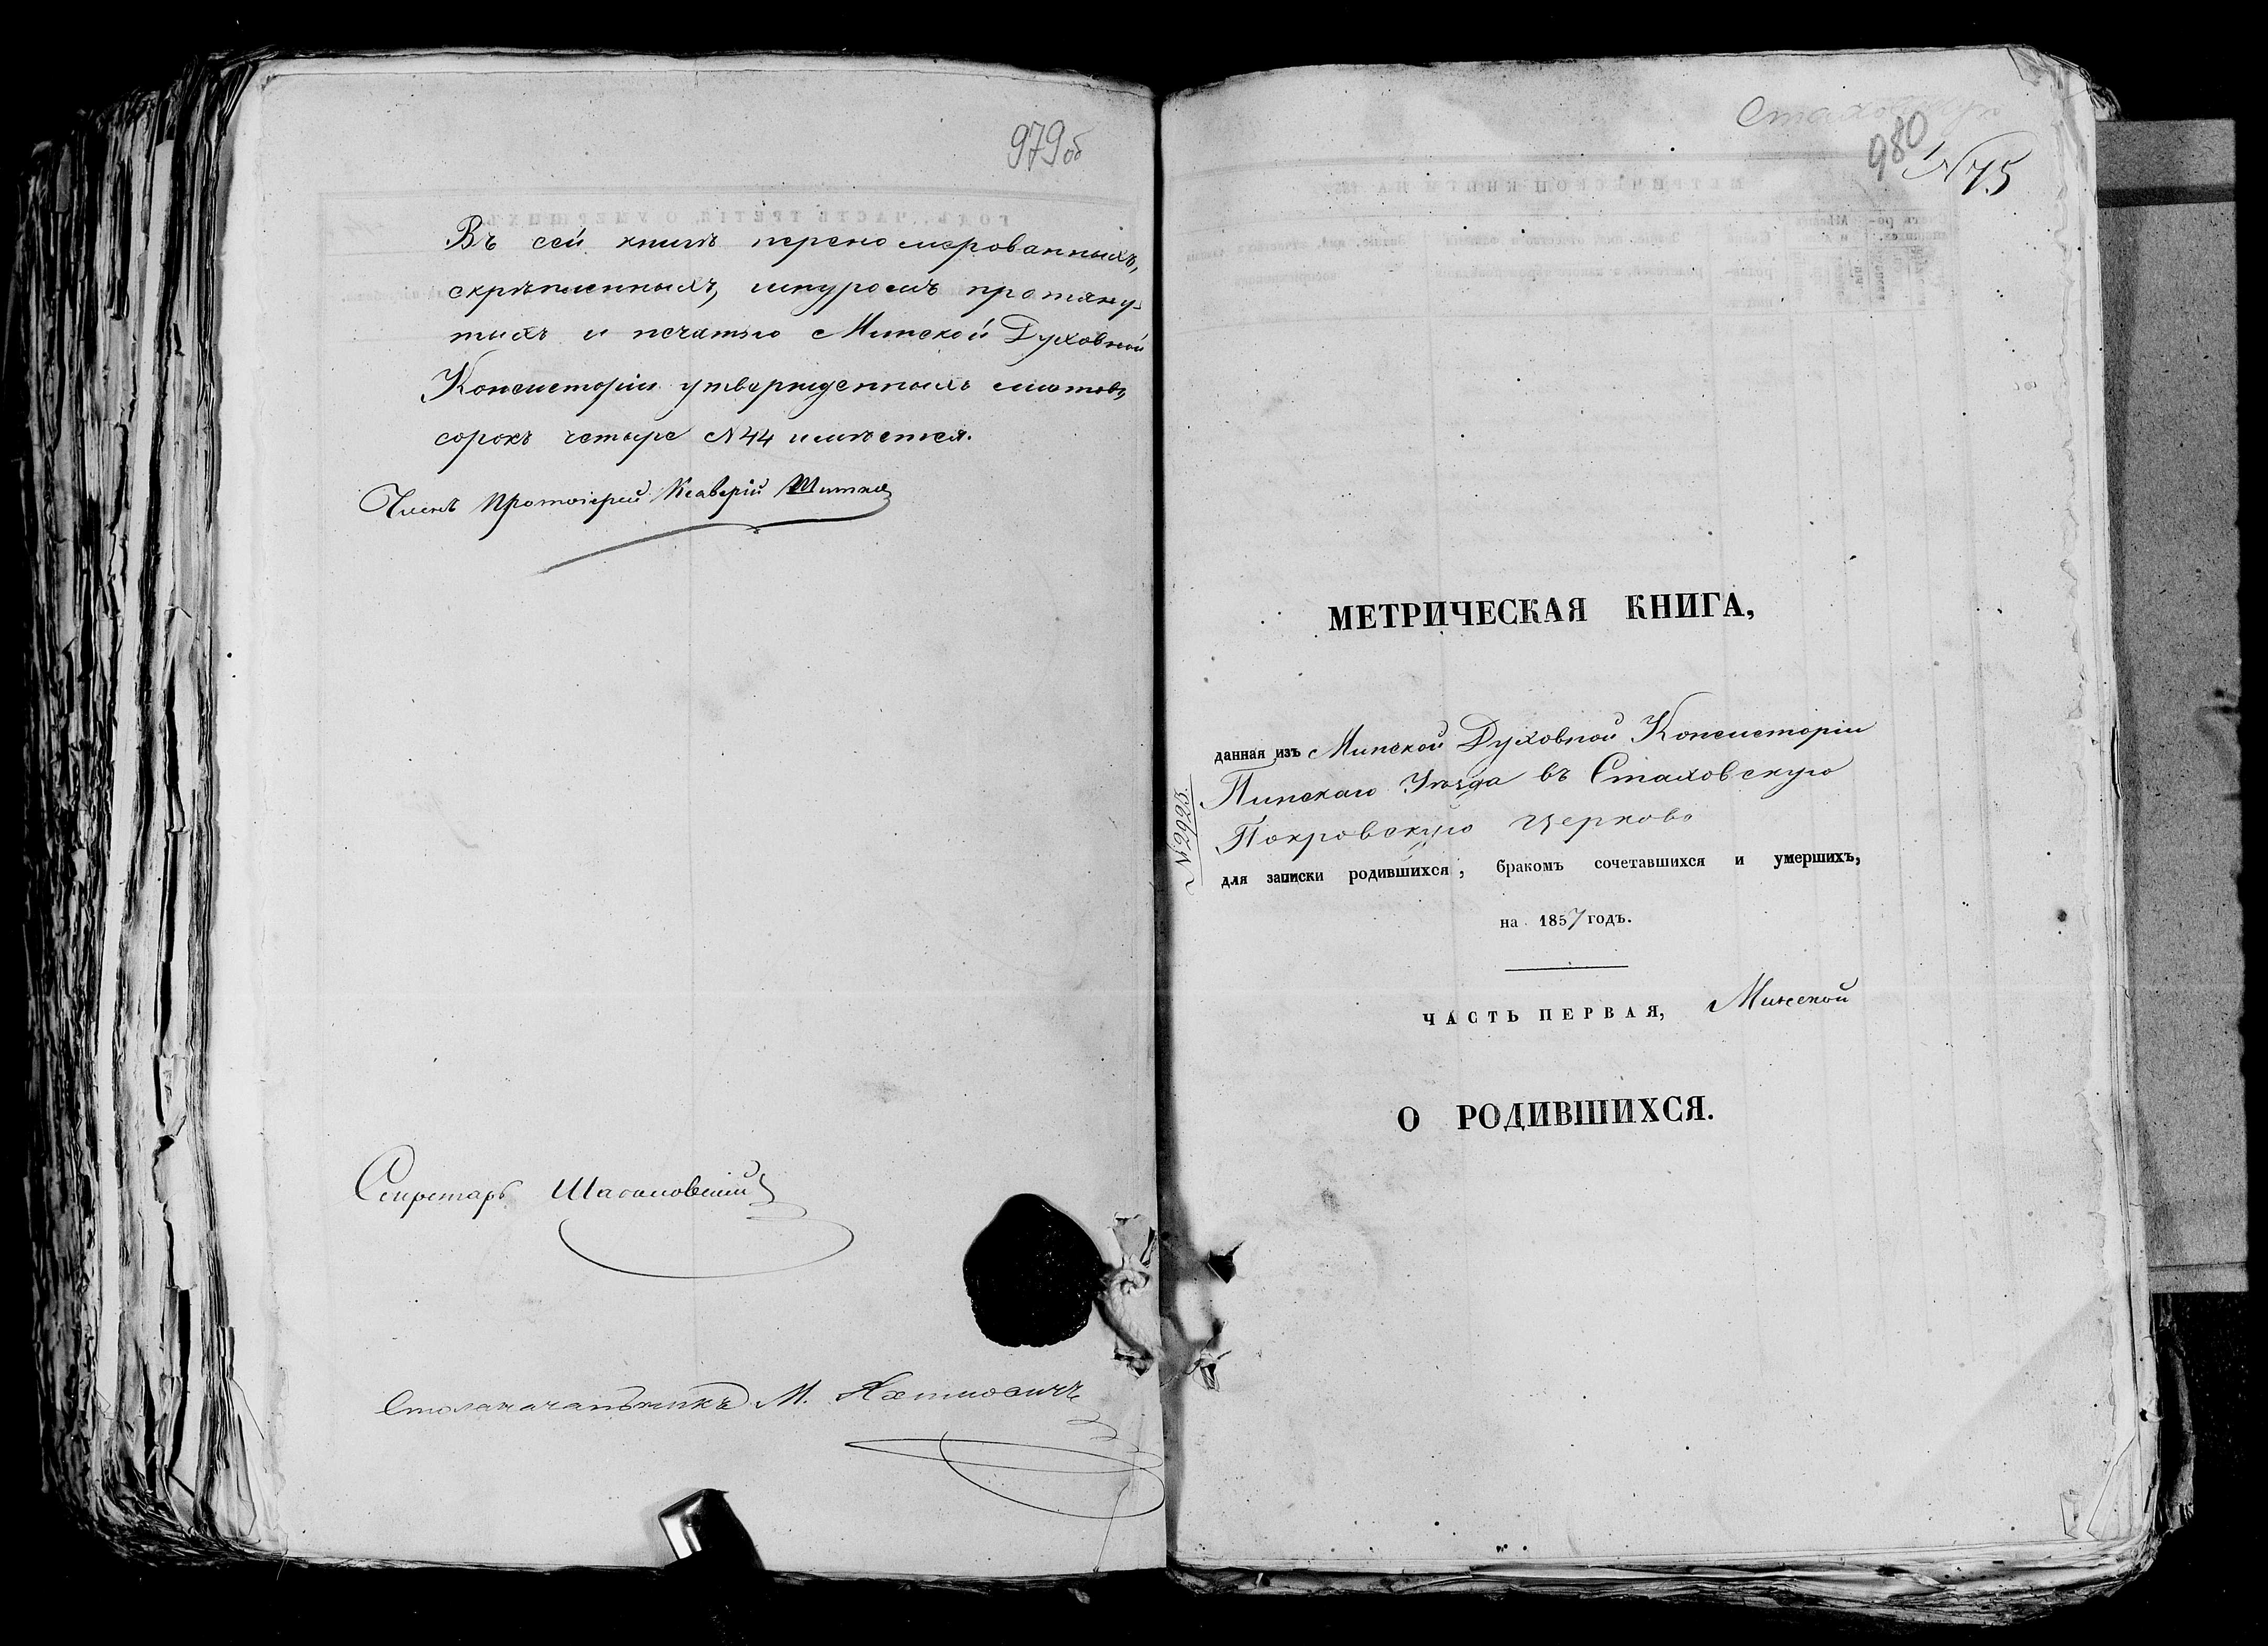 979 об
Въ сей книгѣ перенумерованныхъ,
скрѣпленныхъ, шнуромъ протяну-
тыхъ и печатью Минской Духовной
Консисторіи утвержденныхъ листовъ
сорокъ четыре №44 имѣется.
Членъ Протоіерей Ксаверій
Секретарь
Столоначальникъ М.
Стаховскую
980
№75
МЕТРИЧЕСКАЯ КНИГА,
данная изъ Минской Духовной Консисторіи
Пинскаго Уѣзда въ Стаховскую
Покровскую церковь
для записки родившихся, бракомъ сочетавшихся и умершихъ,
на 1857 годъ.
ЧАСТЬ ПЕРВАЯ, Минской
О РОДИВШИХСЯ.